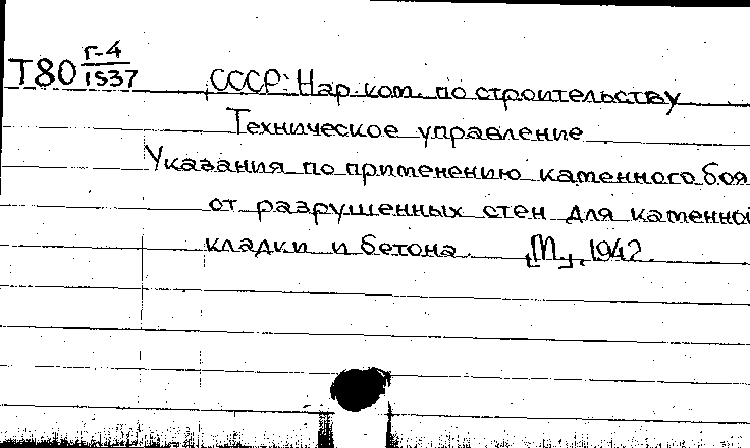 Т80 г-4/1537
СССР. Нар. ком. по строительству
Техническое управление
Указания по применению каменного боя
от разрушенных стен для каменной
кладки и бетона. [М.], 1942.